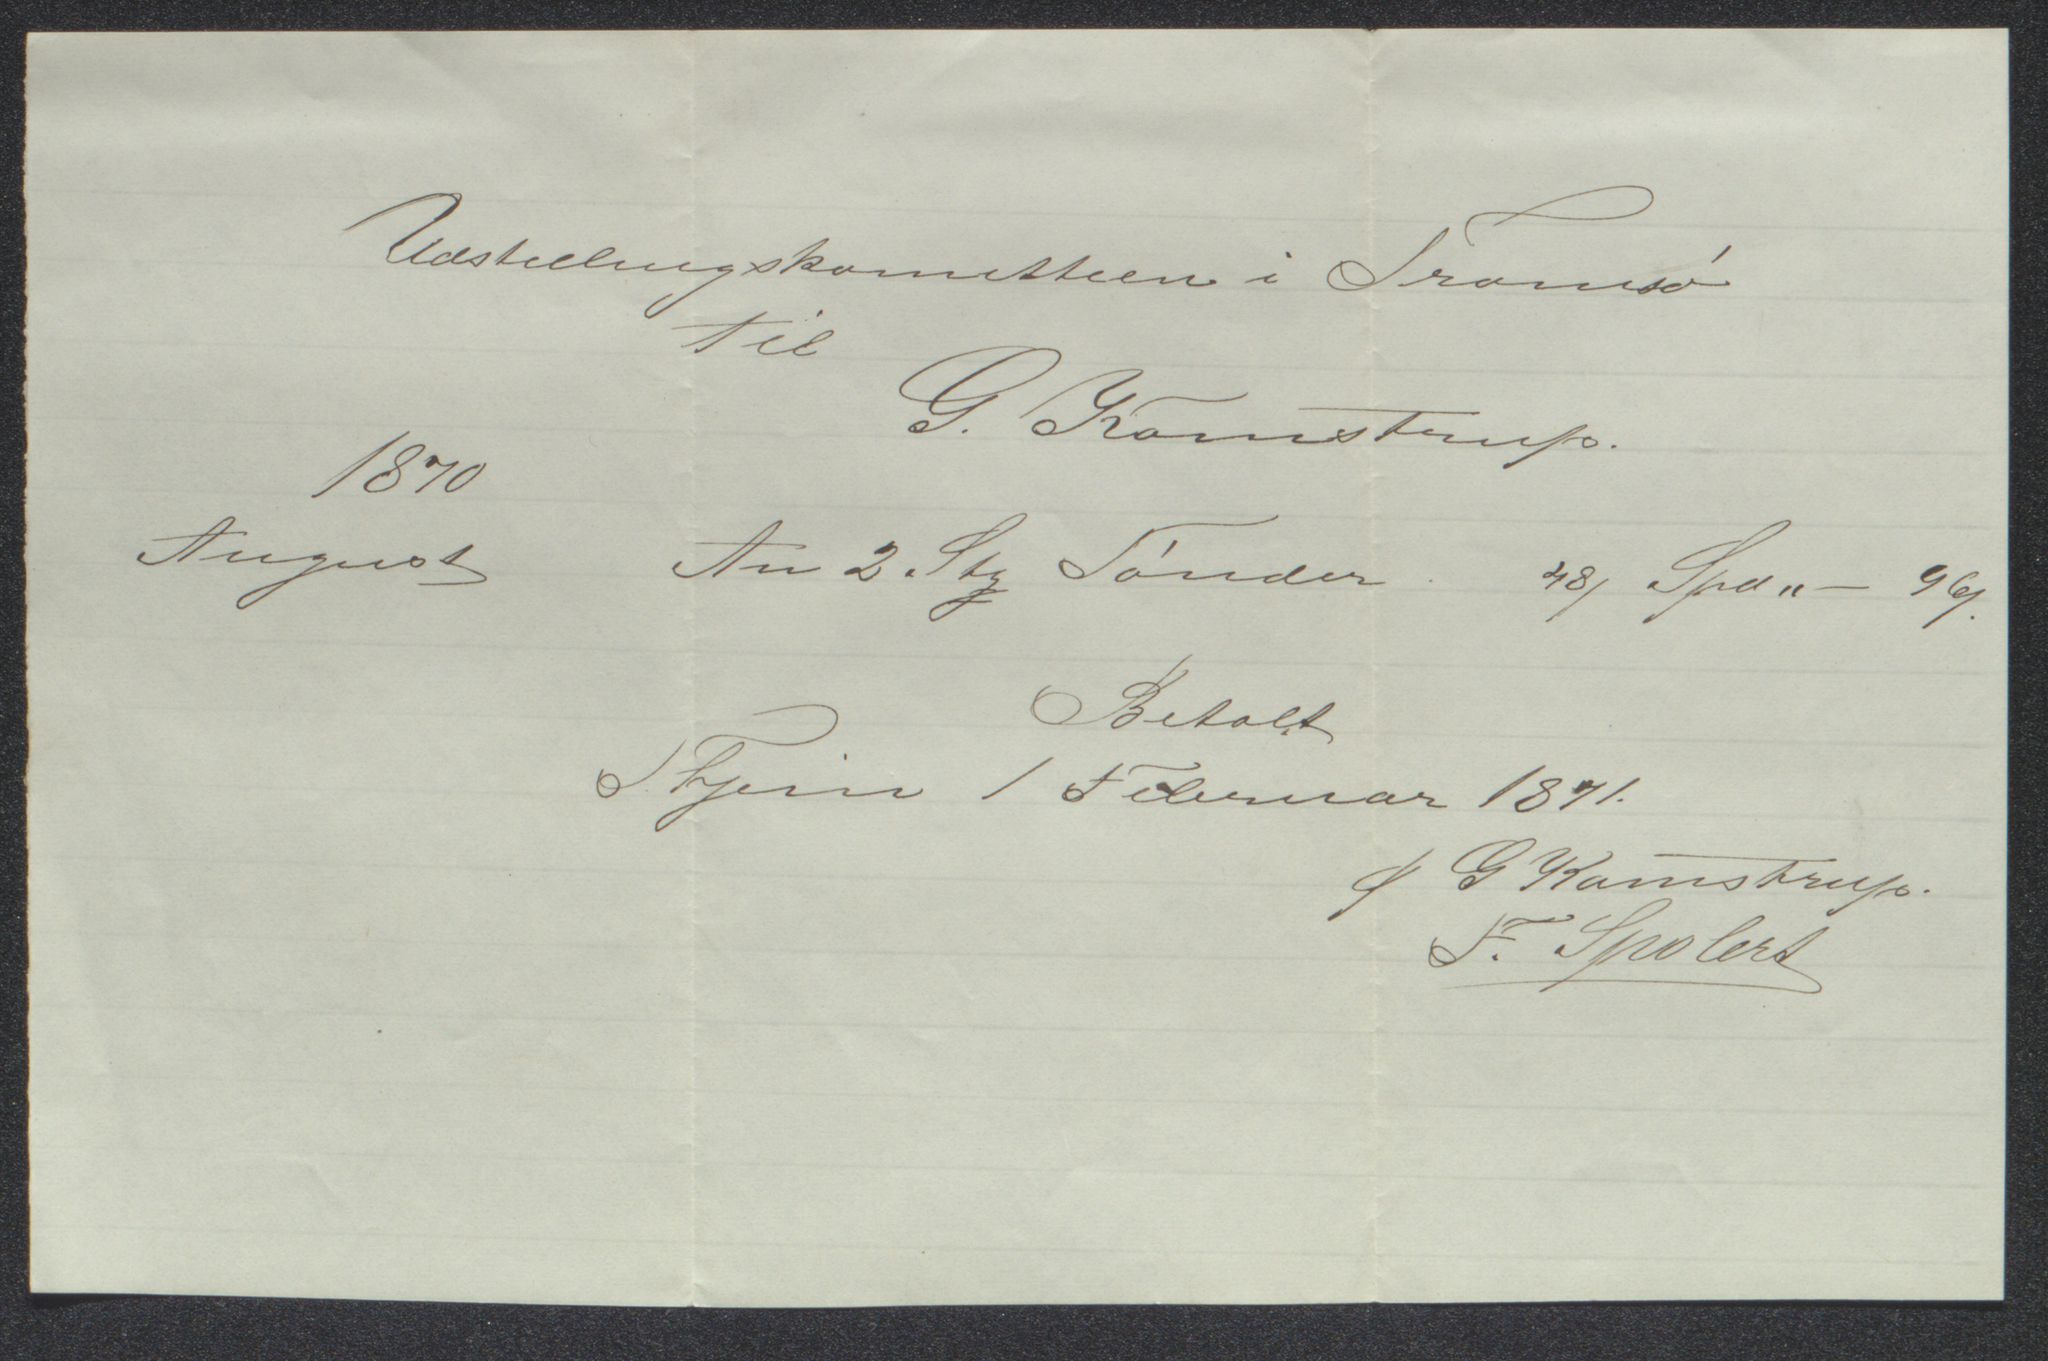 Udstillingskomitteen i Tromsó
til
G. Kamstrup.
1870
August An 2 Stz Tónder 48/ Spd „ — 96/.
Betalt
Skjerin 1 Februar 1871.
G Kamstrup.
F. Spolert